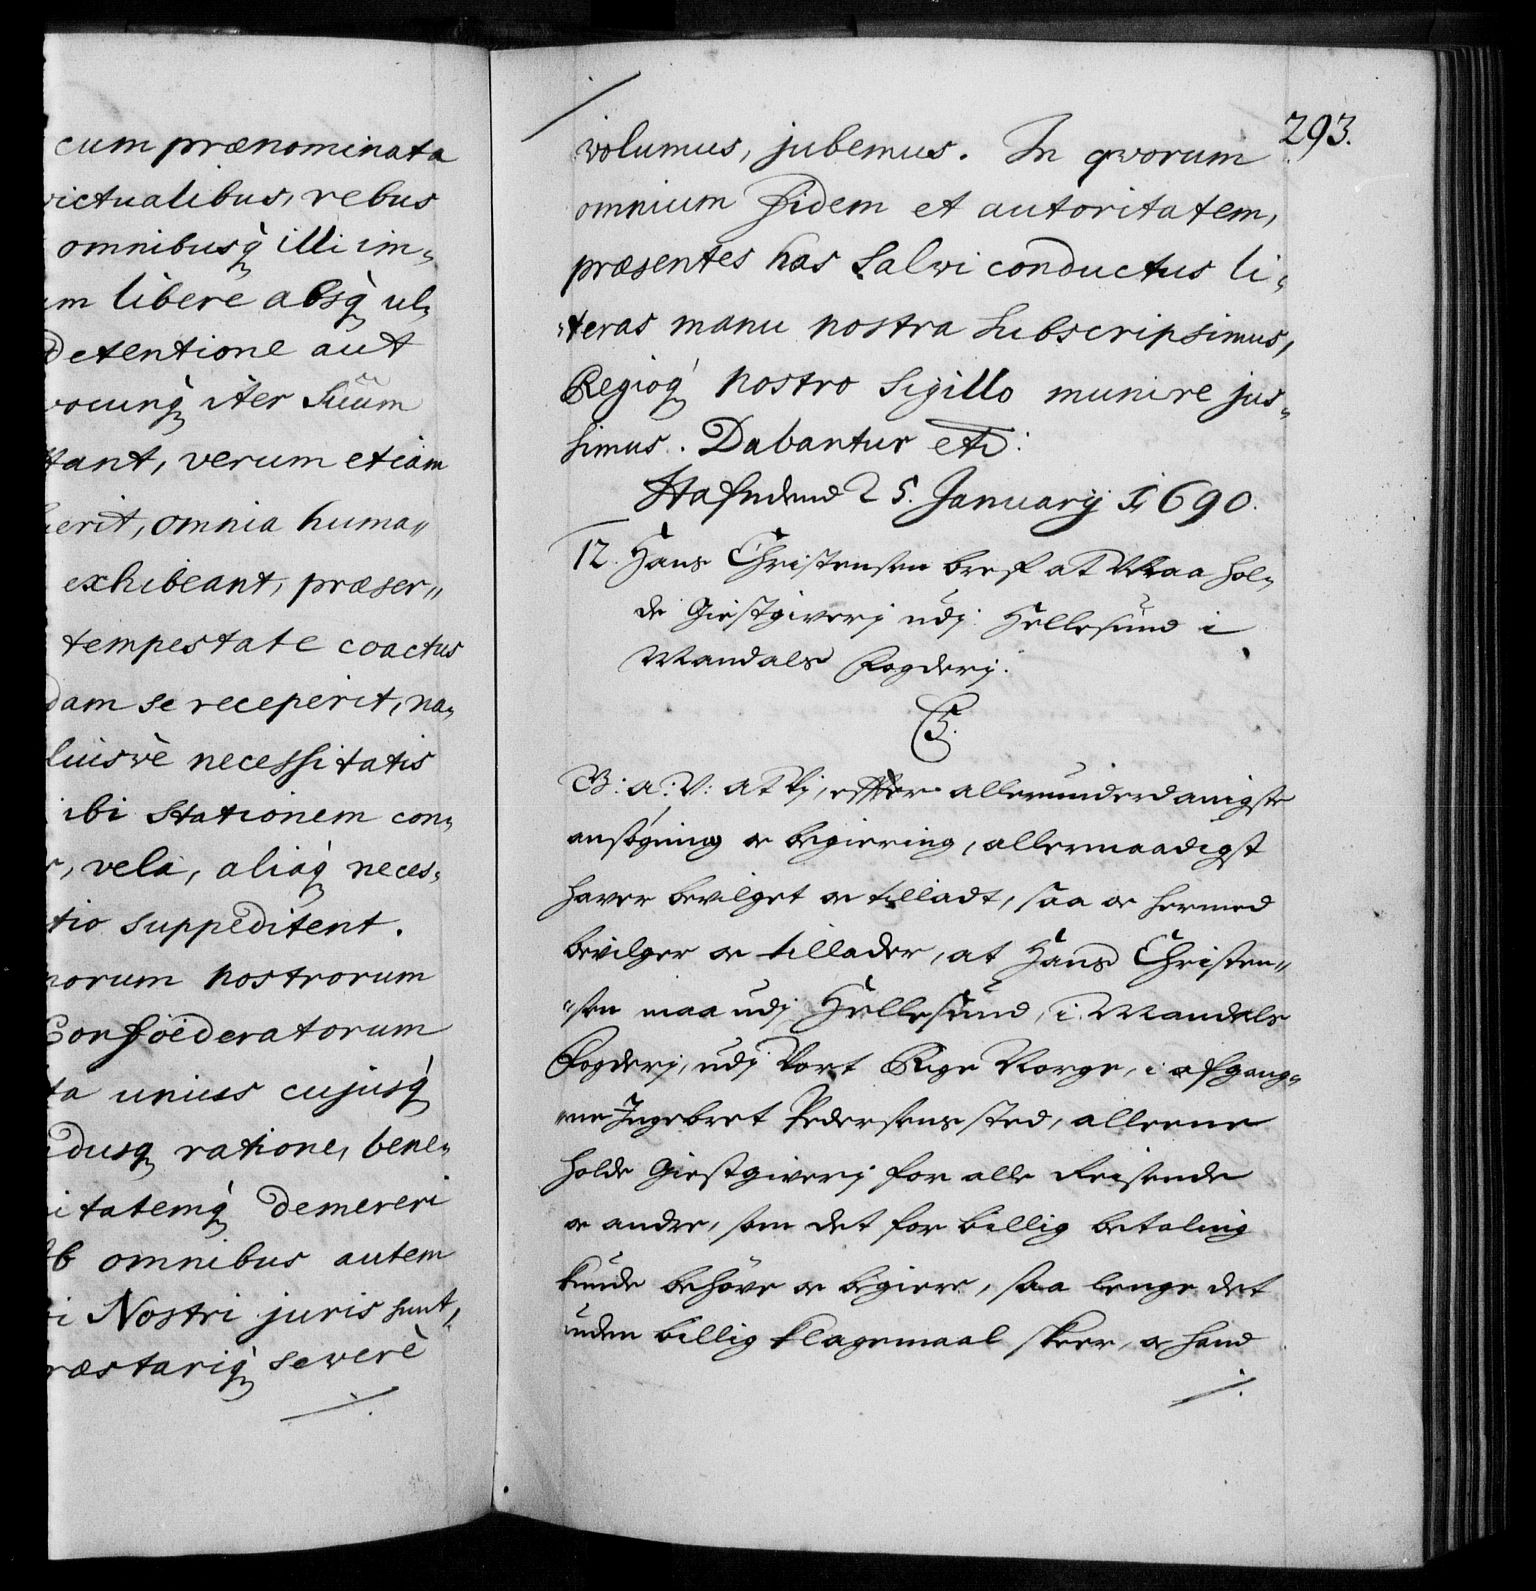 cum prænominata
victualibus, rebus
omnibusq̀ illi im„
um liberè absq̀ ul„
Detentione aut
vocunq̀ iter Suum
tant, verum etiam
erit, omnia huma„
exhibeant, præser„
tempestate coactus
dam se receperit, na„
liusvè necessitatis
ibi Stationem con„
r, vela, aliaq̀ neces„
tio suppeditent.
norum nostrorum
Confoederatorum
ta unius cujusq̀
dusq̀ ratione, bene„
itatemq̀ demereri
b omnibus autem
i Nostri juris sunt,
ræstariq̀ severè
./.
293.
volumus, jubemus. In qvorum
omnium Fidem et autoritatem,
præsentes has Salvi conductus li„
„teras manu nostra Subscripsimus,
Regioq̀ nostro Sigillo munire jus„
simus. Dabantur etc:
Hafn den 25. Januarij 1690.
12. Hans Christensen bref at Maa hol„
de Giestgiverj udj Hellesund i
Mandals Fogderj.
C5.
G: a: V: at Vj, effter allerunderdanigste
ansøgning oc begiering, allernaadigst
hafver bevilget oc tilladt, saa oc hermed
bevilger oc tillader, at Hans Christen„
„sen maa udj Hellesund, i Mandals
Fogderj, udj Vort Rige Norge, i afgang„
„ne Ingebret Pedersens sted, alleene
holde Giestgiverj for alle Reisende
oc andre, som det for billig betaling
kunde behøve oc begiere, saa lenge det
uden billig Klagemaal skeer, oc hand
./.